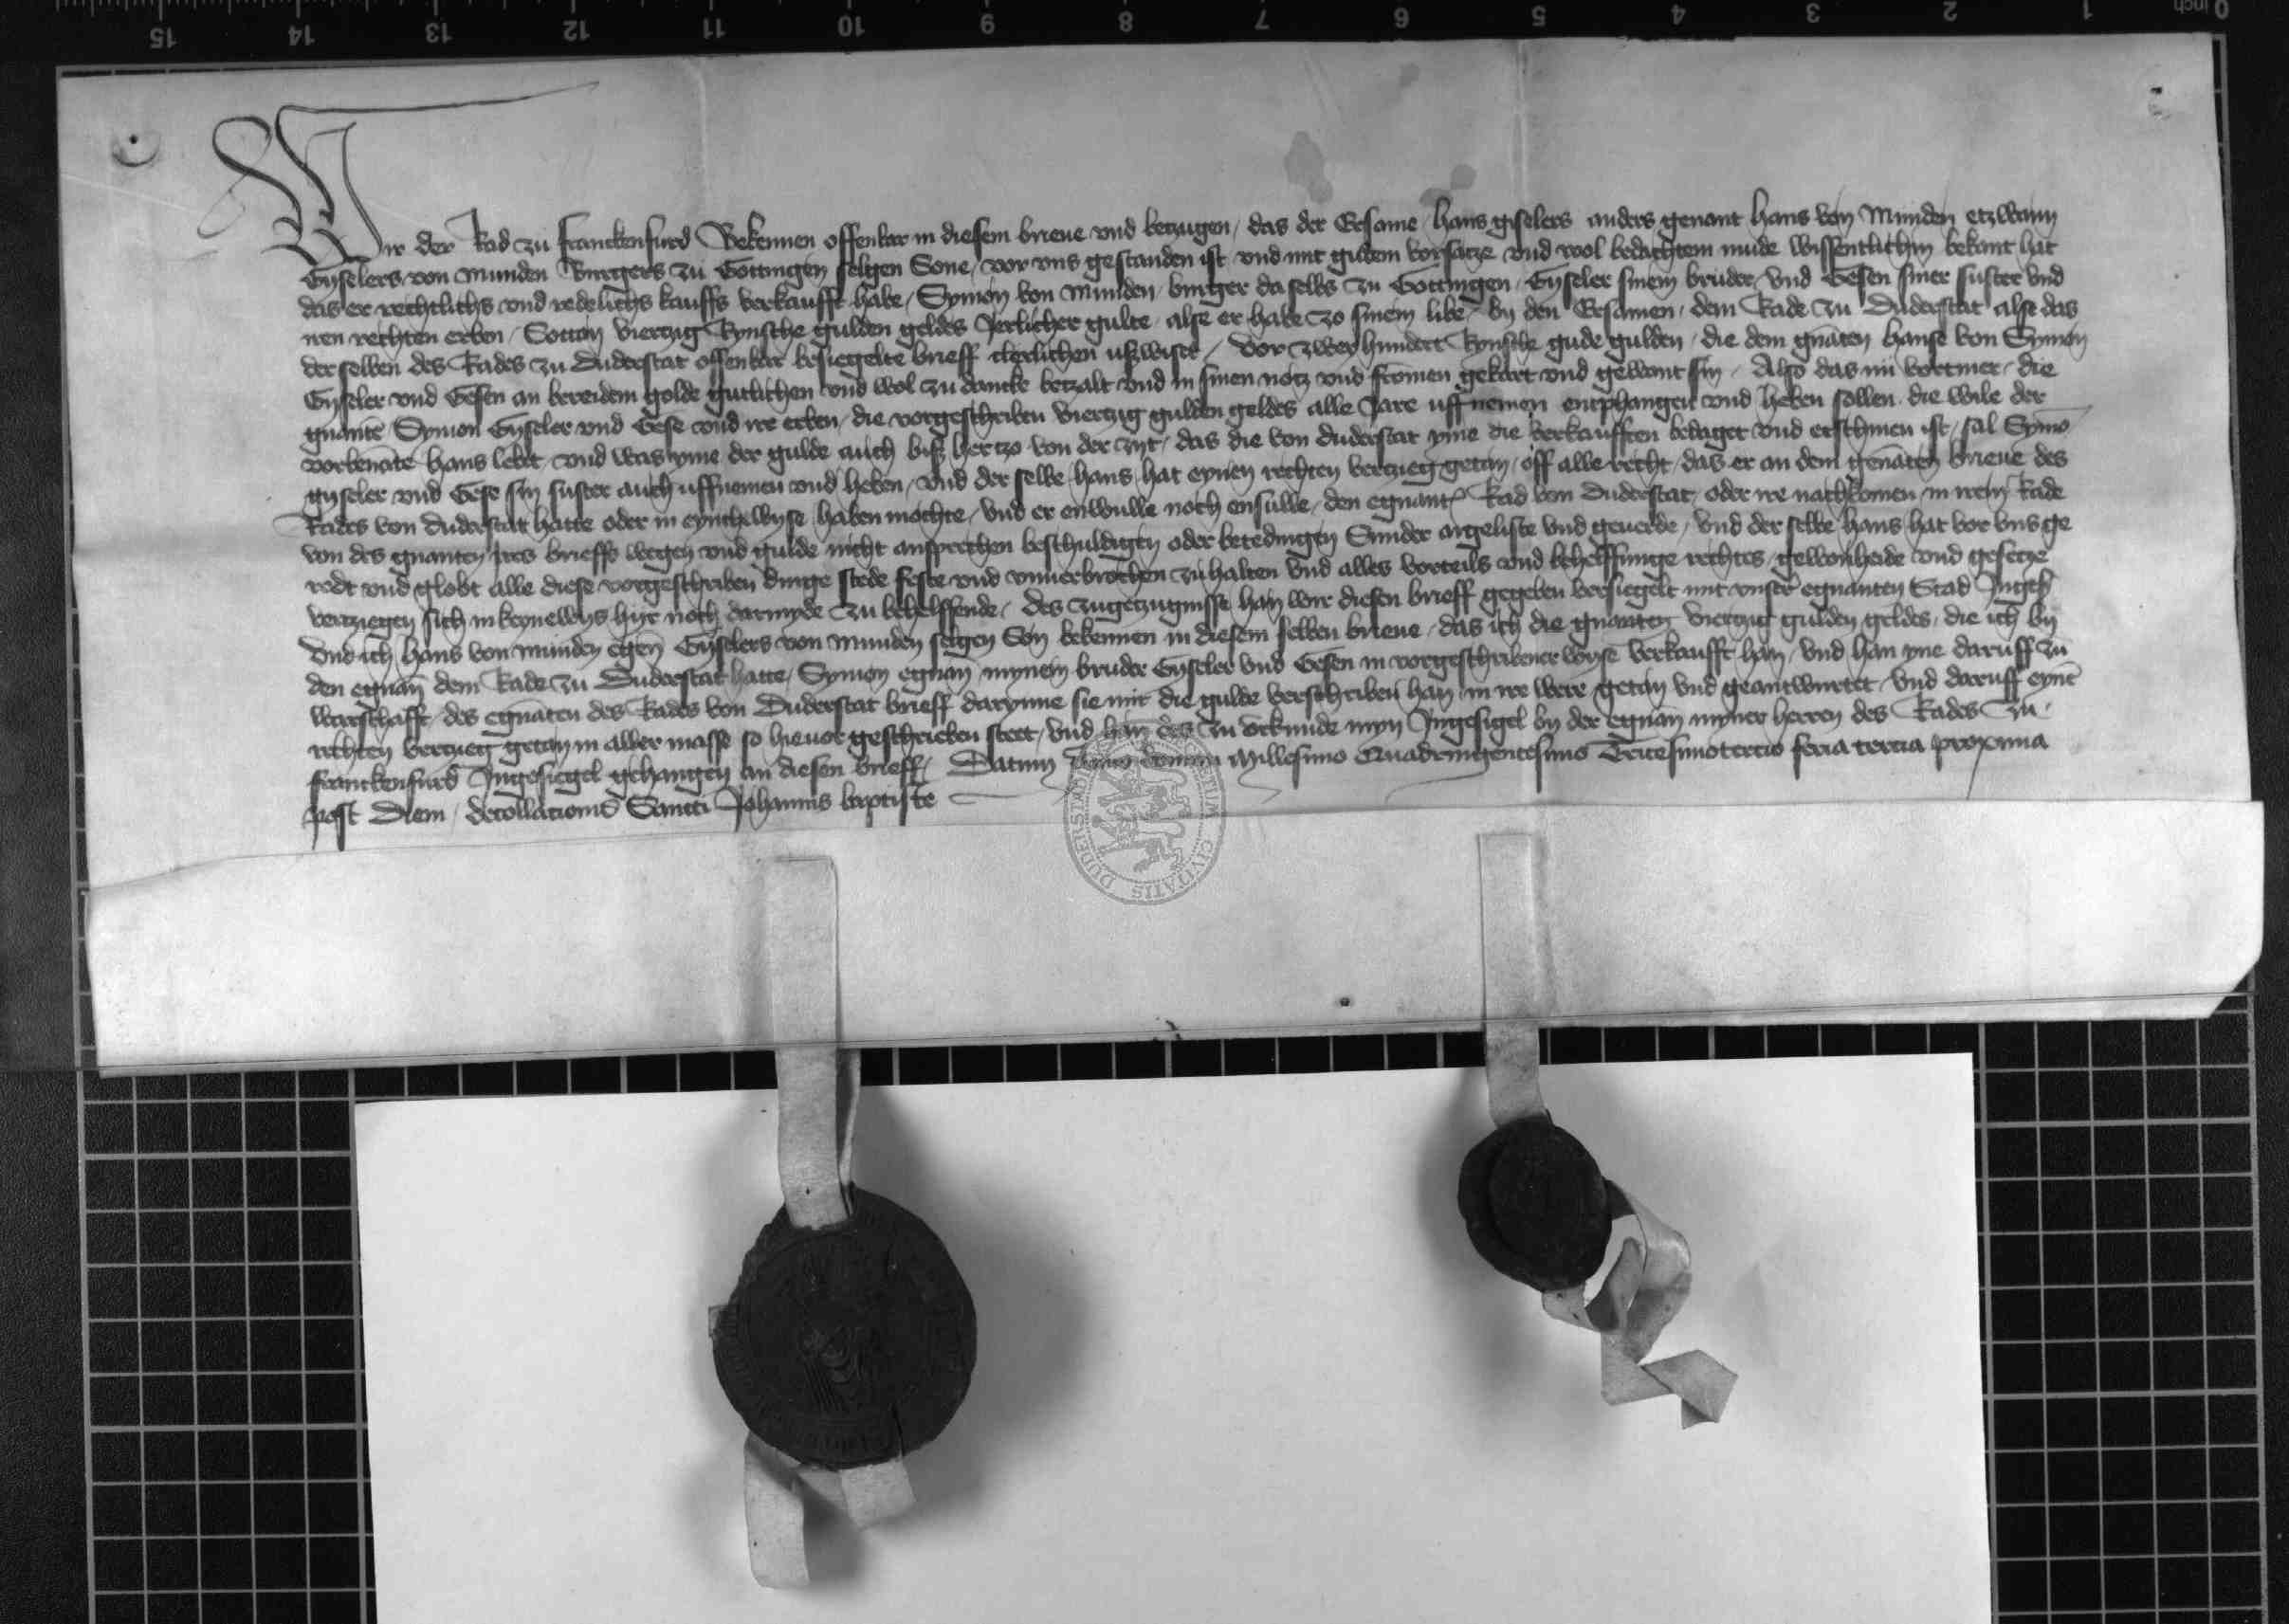 Wir der Rad zu Franckenfurd Bekennen offenbar in diesem brieue vnd betzugen / das der Ersame / hans giselers anders genant hans von Munden etzwann
Gyselers von munden Burgers zu Gottingen selgen Sone / vor vns gestanden ist vnd mit gudem vorsatze vnd wol bedachtem mude wissentlichin bekant hat
das er rechtlichs vnd redelichs kauffs verkaufft habe / Symon von munden / burger da selbs zu Gottingen / Gyseler sinem bruder / vnd Gesen siner suster vnd
iren rechten erben / Sottan viertzig Rynsche gulden geldes Jerlicher gulte / alse er habe zo sinem libe / by den Ersamen / dem Rade zu Duderstat alse das
der selben des Rades zu Duderstat offenbar besiegelte brieff clerlichen ußwiset / vor zwey hundert Rynsche gude gulden / die dem gnãten hanse von Symon
Gyseler vnd Gesen an bereidem golde gutlichen vnd wol zu dancke betzalt vnd in sinen notz vnd fromen gekart vnd gewant sin / Also das nů vortmer / die
gnante / Symon Gyseler vnd Gese vnd ire erben / die vorgeschriben viertzig gulden geldes alle Jare uffnemen entphangen vnd heben sollen / die wile der
vorbenãte hans lebet / vnd was yme der gulde auch biß hertzo von der zyt / das die von duderstat yme die verkaufften bedaget vnd erschinen ist / sal Symõ
gyseler vnd Gese sin suster auch uffnemen vnd heben / vnd der selbe hans hat eynen rechten vertzieg getan / off alle recht / das er an dem genãten brieue des
Rades von duderstat hatte oder in eyncherwyse haben mochte / vnd er enwulle noch ensulle / den egnant̃ Rad von Duderstat / oder ire nachkomen in irem Rade
von des gnanten ires brieffs wegen vnd gulde nicht ansprechen beschuldigen oder betedingen Sunder argeliste vnd geuerde / vnd der selbe hans hat vor vns ge
redt vnd globt alle diese vorgeschriben dinge stede feste vnd vnuerbrochen zu halten vnd alles vorteils vnd behelffunge rechtes / gewonheide vnd gesetze
vertziegen sich in keynewys hyr noch darmyde zu behelffende / des zu getzugnisse han wir diesen brieff gegeben versiegelt mit vnser egnanten Stad Ingeß
vnd ich hans von munden egeñ Gyselers von munden selgen Son bekennen in diesem selben brieue / das ich die gnanten viertzig gulden geldes / die ich by
den egnañ dem Rade zu Duderstat hatte / Symon egnañ mynem bruder Gyseler vnd Gesen in vorgeschribener wyse verkaufft han / vnd han yne daruff zu
werschafft / des egnãten des Rades von Duderstat brieff darynne sie mir die gulde verschriben han in ire were getan vnd geantwurtet / vnd daruff eynẽ
rechten vertzieg getan in aller masse so hieuor geschrieben steet / vnd han des zu orkunde myn Ingesigel by der egnañ myner herren des Rades zu
franckenfurd Ingesiegel gehangen an diesen brieff / Datum Anno domini Millesimo Quadringentesimo Tricesimotercio feria tercia proxima
post Diem / decollationis Sancti Johannis baptiste
15 14 13 12 11 10 9 8 7 6 5 4 3 2 1 0 inch